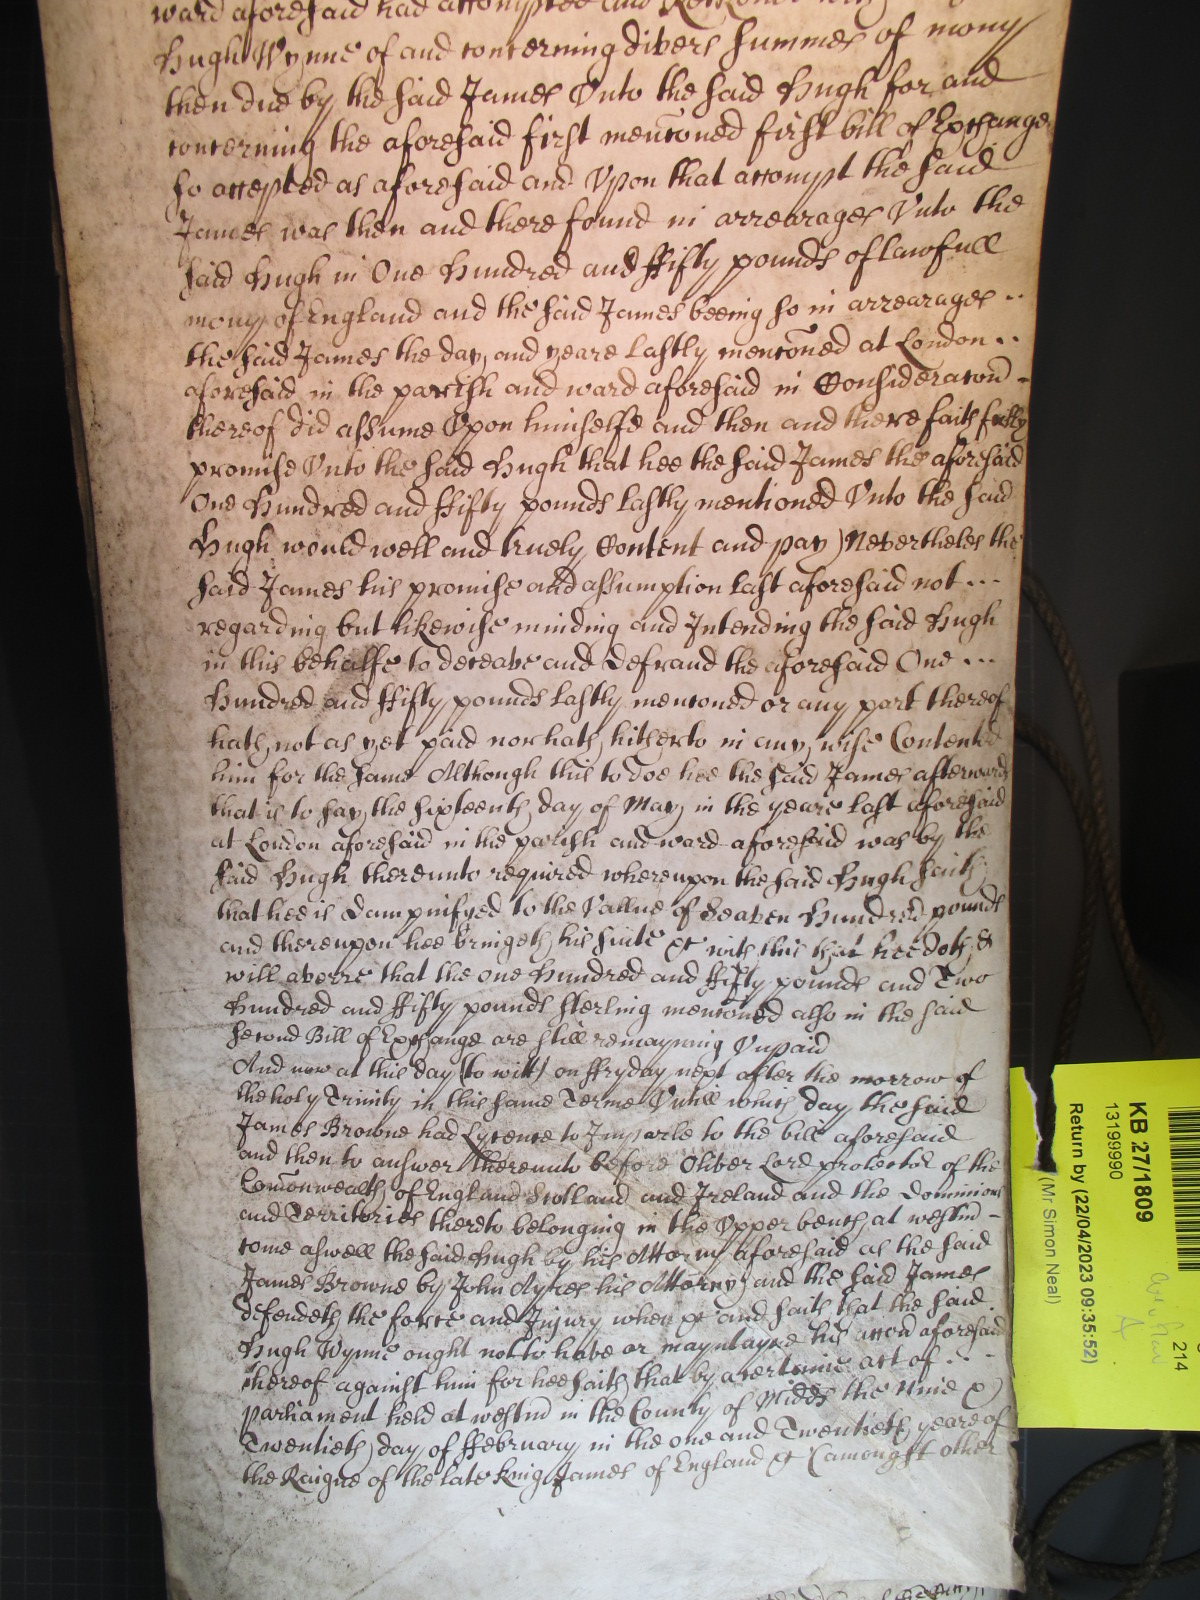 ward aforesaid had accompted and Reckoned with
Hugh Wynne of and concerning divers summes of mony
then due by the said James Unto the said Hugh for and
concerning the aforesaid first menc̄oned first bill of Exchange
so accepted as aforesaid and Upon that accompt the said
James was then and there found in arrearages Unto the
said Hugh in One Hundred and ffifty pounds of lawfull
mony of England and the said James beeing so in arrearages ..
the said James the day and yeare lastly menc̄oned at London ..
aforesaid in the parrish and ward aforesaid in Considerac̄on -
thereof did assume Upon himselfe and then and there faithfully
promise Unto the said Hugh that hee the said James the aforesaid
One Hundred and ffifty pounds lastly mentioned Unto the said
Hugh would well and truely Content and pay) Nevertheles the
said James his promise and assumption last aforesaid not ...
regarding but likewise minding and Intending the said Hugh
in this behalfe to deceave and defraud the aforesaid One ...
Hundred and ffifty pounds lastly menc̄oned or any part thereof
hath not as yet paid nor hath hitherto in any wise Contented
him for the same Although this to doe hee the said James afterwards
that is to say the sixteenth day of May in the yeare last aforesaid
at London aforesaid in the parish and ward aforesaid was by the
said Hugh thereunto required whereupon the said Hugh saith
that hee is dampnifyed to the Vallue of Seaven Hundred pounds
and thereupon hee bringeth his suite &c with this that hee doth &
will averre that the one Hundred and ffifty pounds and Two
Hundred and ffifty pounds sterling menc̄oned also in the said
second Bill of Exchange are still remayning Unpaid
And now at this day (to witt) on ffryday next after the morrow of
the holy Trinity in this same Terme Untill which day the said
James Browne had Lycence to Imparle to the bill aforesaid
and then to answer thereunto before Oliver Lord protector of the
Com̄onwealth of England Scotland and Ireland and the Dominions
and Territories thereto belonging in the Upper bench at westm -
come aswell the said Hugh by his Attorny aforesaid as the said
James Browne by John Aykes his Attorny and the said James
defendeth the force and Injury when &c and saith that the said
Hugh Wynne ought not to have or mayntayne his acc̄on aforesaid
thereof against him for hee saith that by a certaine act of ...
Parliament held at westm in the County of Midds the Nine &
Twentieth day of ffebruary in the one and Twentieth yeare of
the Raigne of the late King James of England &c (amongst other
KB 27/1809
13199990
Return by (22/04/2023 09:35:52)
(Mr Simon Neal)
214